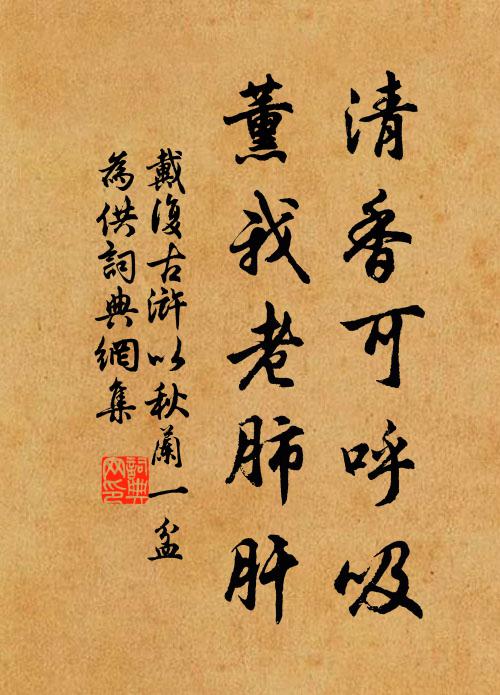 清香可呼吸
薰我老肺肝
戴復古滸以秋蘭一盆
為供詞典網集
詞典網印